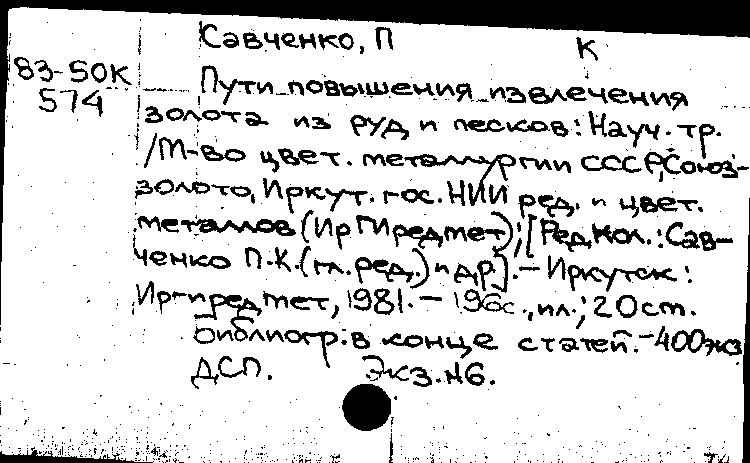 Савченко, П
К
83-50К
574
Пути повышения извлечения
золота из руд и песков: Науч. тр.
/М-во цвет. металлургии СССР, Союз-
золото, Иркут. гос. НИИ ред. и цвет.
металлов (ИрГИредмет); [Ред.кол.: Сав-
ченко П.К. (гл. ред.) и др.]. — Иркутск:
Иргиредмет, 1981. — 196с., ил.; 20 cm.
Библиогр: в конце статей. - 400 экз
ДСП. Экз. №6.